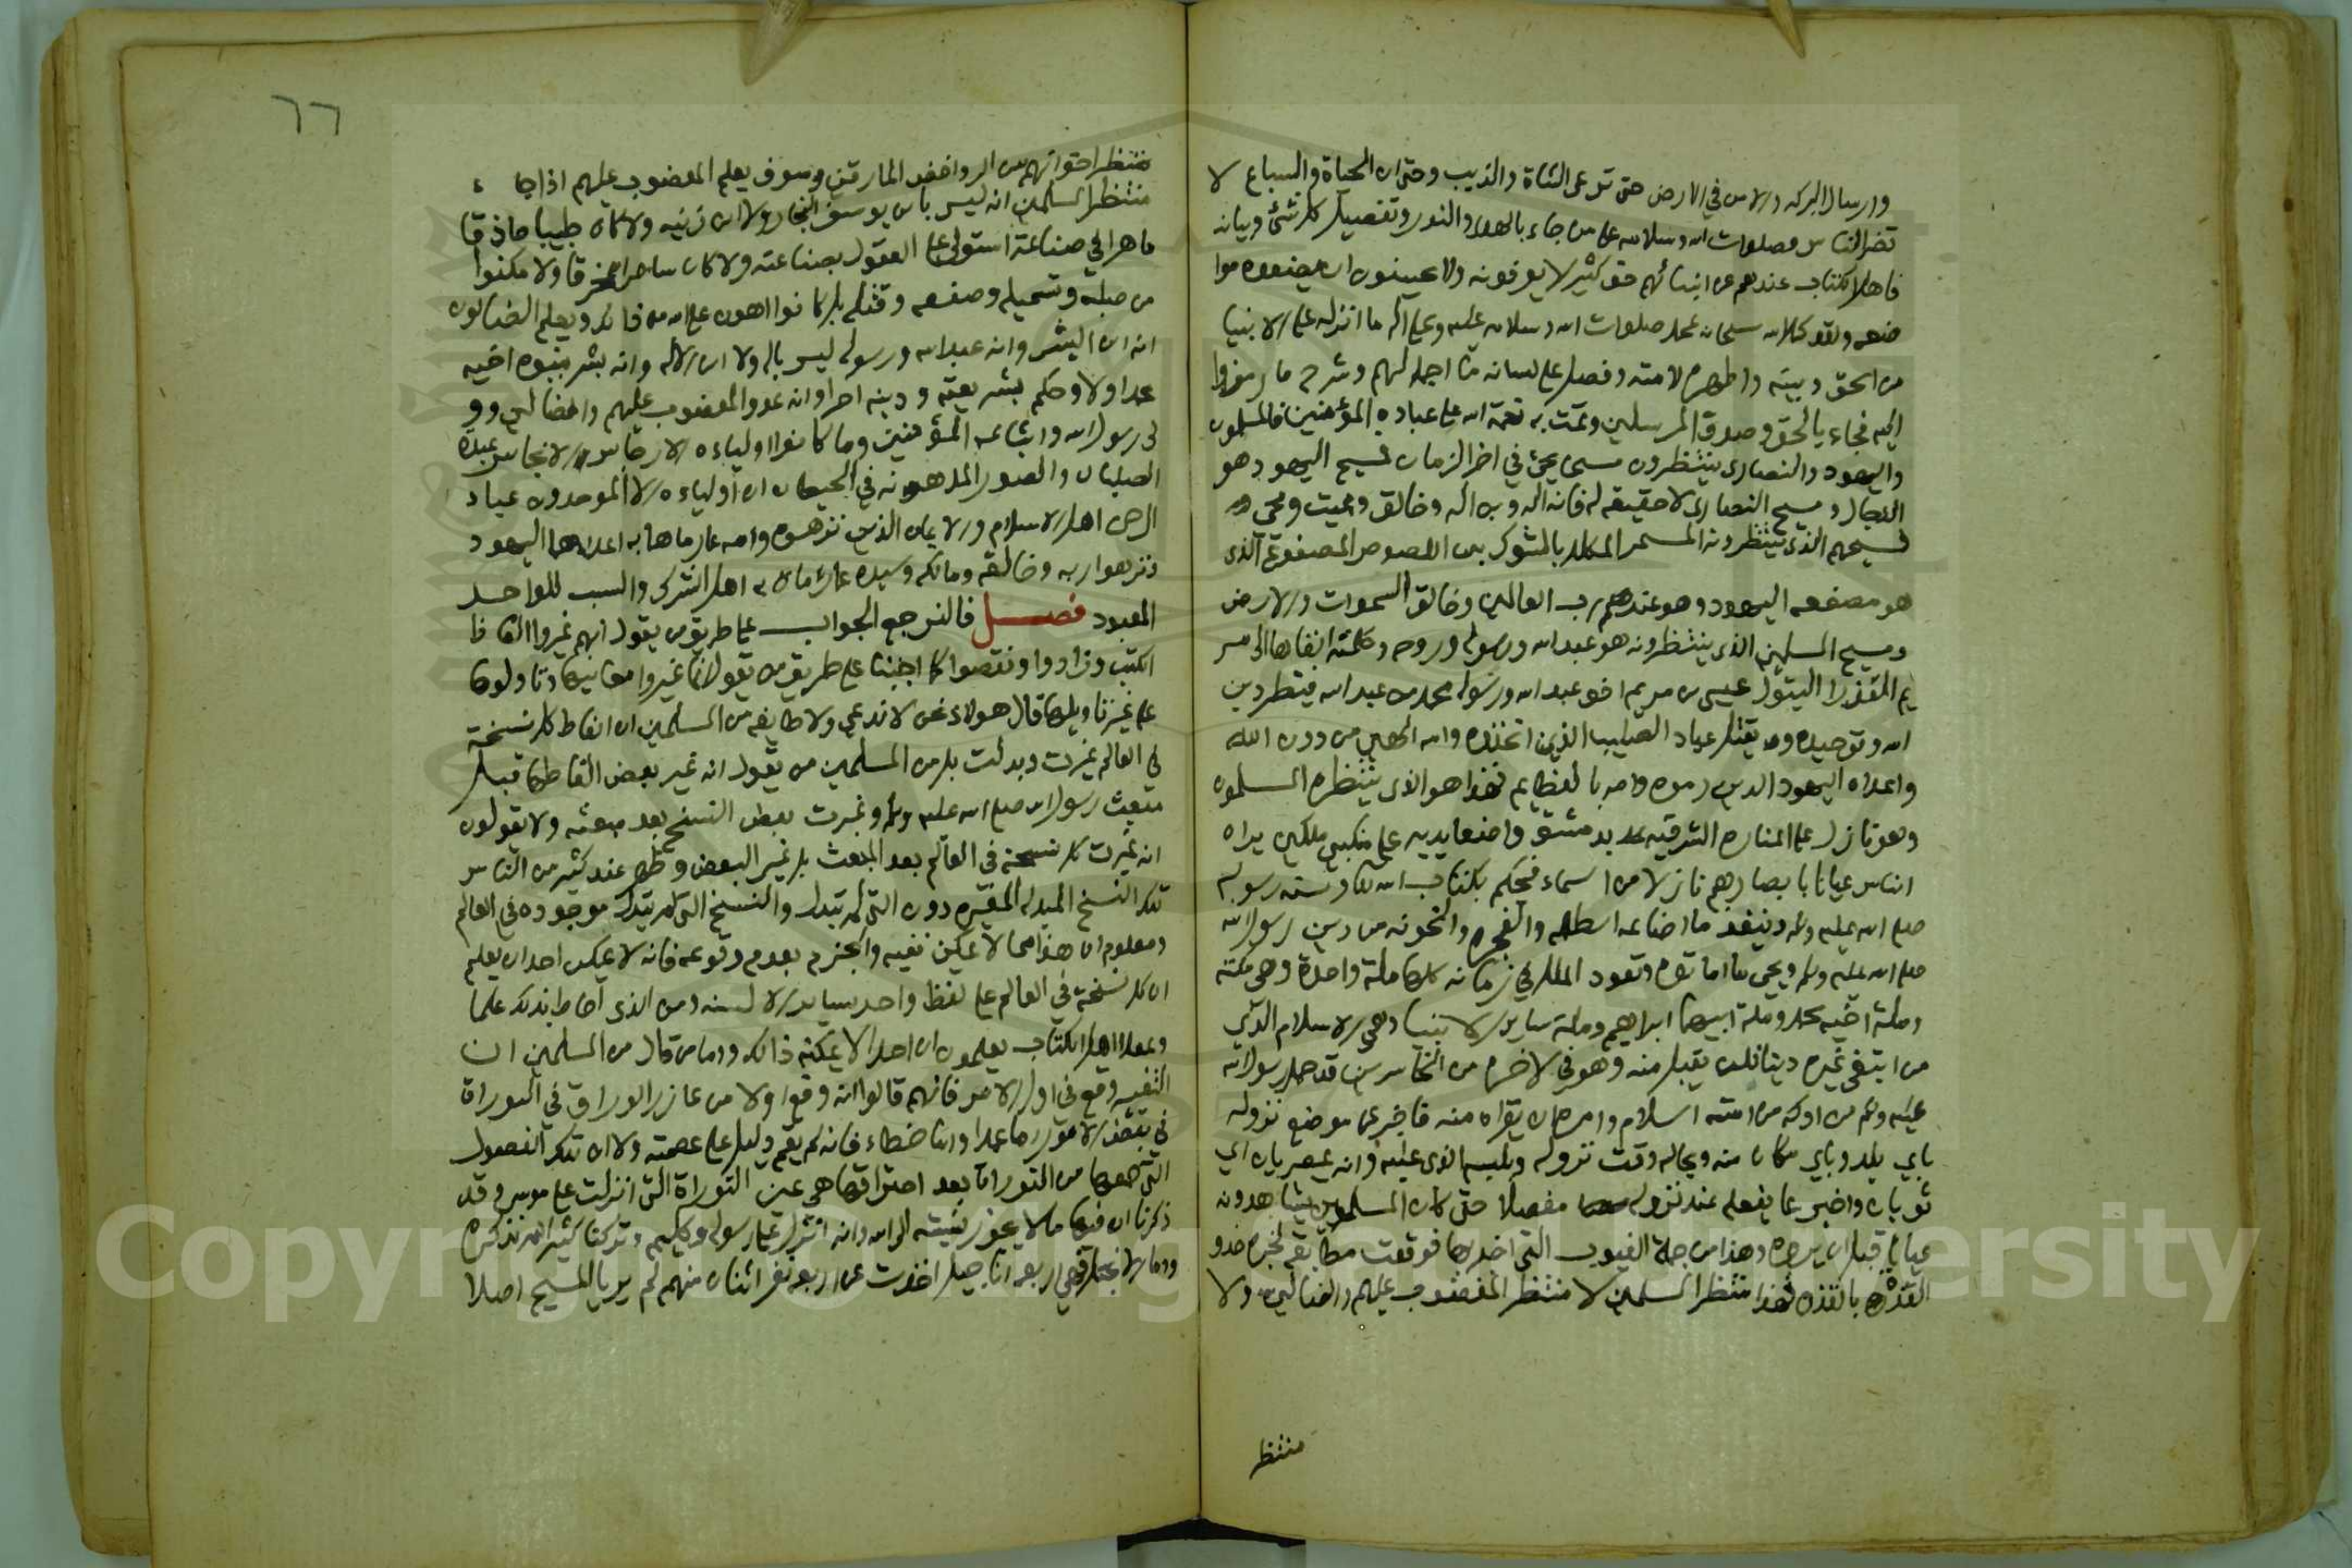 وارسال البركه والامن في الارض حتى ترعى الشاة والذيب وحتى ان الحياة والسباع لا
تضر الناس فصلوات الله وسلامه على من جاء بالهدى والنور وتفصيل كل شئ وبيانه
فاهل الكتاب عندهم عن انبيائهم حق كثير لا يعرفونه ولا يحسنون ان يضعوه مواضعه
ولقد كمل الله سبحانه بمحمد صلوات الله وسلامه عليه وعلى اله ما انزله على الانبيا
من الحق وبينه واظهره لامته وفصل على لسانه ما اجمله لهم وشرح ما رمزوا
اليه فجاء بالحق وصدق المرسلين وتمت به نعمة الله على عباده المؤمنين فالمسلمون
واليهود والنصارى ينتظرون مسيحا يجئ في اخر الزمان فمسيح اليهود هو
الدجال ومسيح النصارى لا حقيقه له فانه اله وبن اله وخالق ومميت ومحي
فمسيحهم الذي ينتظرونه المسمر المكلل بالشوك بين اللصوص المصفوع الذي
هو مصفعه اليهود وهو عندهم رب العالمين وخالق السموات والارض
ومسيح المسلمين الذي ينتظرونه هو عبد الله ورسوله وروحه وكلمته القاها الى مر
يم العذراء البتول عيسى بن مريم اخو عبد الله ورسوله محمد بن عبد الله فيظهر دين
الله وتوحيده ويقتل عباد الصليب الذين اتخذوه وامه الهين من دون الله
واعداه اليهود الدين رموه وامه بالعظايم فهذا هو الذي ينتظره المسلمون
وهو نازل على المناره الشرقيه بدمشق واضعا يديه على منكبي ملكين يراه
الناس عيانا بابصارهم نازلا من السماء فيحكم بكتاب الله وسنه رسوله
صلى الله عليه وسلم وينفذ ما اضاعه الظلمه والفجره والخونه من دين رسول الله
صلى الله عليه وسلم ويحي ما اماتوه وتعود الملل في زمانه كلها ملة واحدة وهي ملته
وملة اخيه محمد وملة ابيهما ابراهيم وملة ساير الانبيا وهي الاسلام الذي
من ابتغى غيره دينا فلن يقبل منه وهو في الاخره من الخاسرين وقد حمل رسول الله
عليه وسلم من ادركه من امته السلام وامره ان يقراه منه فاخبر عن موضع نزوله
باي بلد وباي مكان منه وبحاله وقت نزوله وملبسه الذي عليه وانه ممصرتان اي
ثوبان واخبر بما يفعله عند نزوله مفصلا حتى كان المسلمون يشاهدونه
عيانا قبل ان يروه وهذا من جملة الغيوب التي اخبر بها فوقعت مطابقه لخبره حذو
القذة بالقذه فهذا منتظر المسلمين لا منتظر المغضوب عليهم والضالين ولا
منتظر
٦٦
منتظر اخوانهم من الروافض المارقين وسوف يعلم المغضوب عليهم اذا جا
منتظر المسلمين انه ليس بابن يوسف النجار ولا ابن زنيه ولا كان طبيبا حاذقا
ماهرا في صناعة استولى على العقول بصناعته ولا كان ساحرا مخرقا ولا مكنوا
من صلبه وتسميره وصفعه وقتله بل كانوا اهون على الله من ذلك ويعلم الضالون
انه ابن البشر وانه عبد الله ورسوله ليس باله ولا ابن الاله وانه بشر بنبوه اخيه
محمد اولا وحكم بشريعته ودينه اخرا وانه عدو المغضوب عليهم والضالين وو
لي رسول الله واتباعه المؤمنين وما كانوا اولياءه الارجاس والانجاس عبدة
الصلبان والصور المدهونه في الحيطان ان اولياءه الا الموحدون عباد
الرحمن اهل الاسلام والايمان الذين نزهوه وامه عما رماهما به اعداهما اليهود
ونزهوا ربه وخالقه ومالكه وسيده عما رماه به اهل الشرك والسب للواحد
المعبود فصل فالنرجع الجواب على طريق من يقول انهم غيروا الفاظ
الكتب وزادوا ونقصوا كما اجبنا على طريق من يقول انما غيروا معانيها وتاولوها
على غير تاويلها قال هولاء نحن لا ندعي ولا طايفه من المسلمين ان الفاظ كل نسخة
في العالم غيرت وبدلت بل من المسلمين من يقول انه غير بعض الفاظها قبل
مبعث رسول الله صلى الله عليه وسلم وغيرت بعض النسخ بعد مبعثه ولا يقولون
انه غيرت كل نسخة في العالم بعد المبعث بل غير البعض وظهر عند كثير من الناس
تلك النسخ المبدله المغيره دون التي لم تبدل والنسخ التي لم تبدل موجوده في العالم
ومعلوم ان هذا مما لا يمكن نفيه والجزم بعدم وقوعه فانه لا يمكن احدا ان يعلم
ان كل نسخة في العالم على لفظ واحد بساير الالسنه ومن الذي احاط بذلك علما
وعقلا اهل الكتاب يعلمون ان احدا لا يمكنه ذالك واما من قال من المسلمين ان
التغيير وقع في اول الامر فانهم قالوا انه وقع اولا من عازر الوراق في التوراة
في بعض الامور اما عمدا واما خطاء فانه لم يقم دليل على عصمته ولا ان تلك الفصول
التي جمعها من التوراة بعد احتراقها هي عين التوراة التي انزلت على موسى وقد
ذكرنا ان فيها ما لا يجوز نسبته الى الله وانه انزله على رسوله وكليمه وتركنا كثيرا لم نذكره
واما الانجيل فهي اربعه اناجيل اخذت عن اربعه نفر اثنان منهم لم يريا المسيح اصلا
Copyright © King Saud University